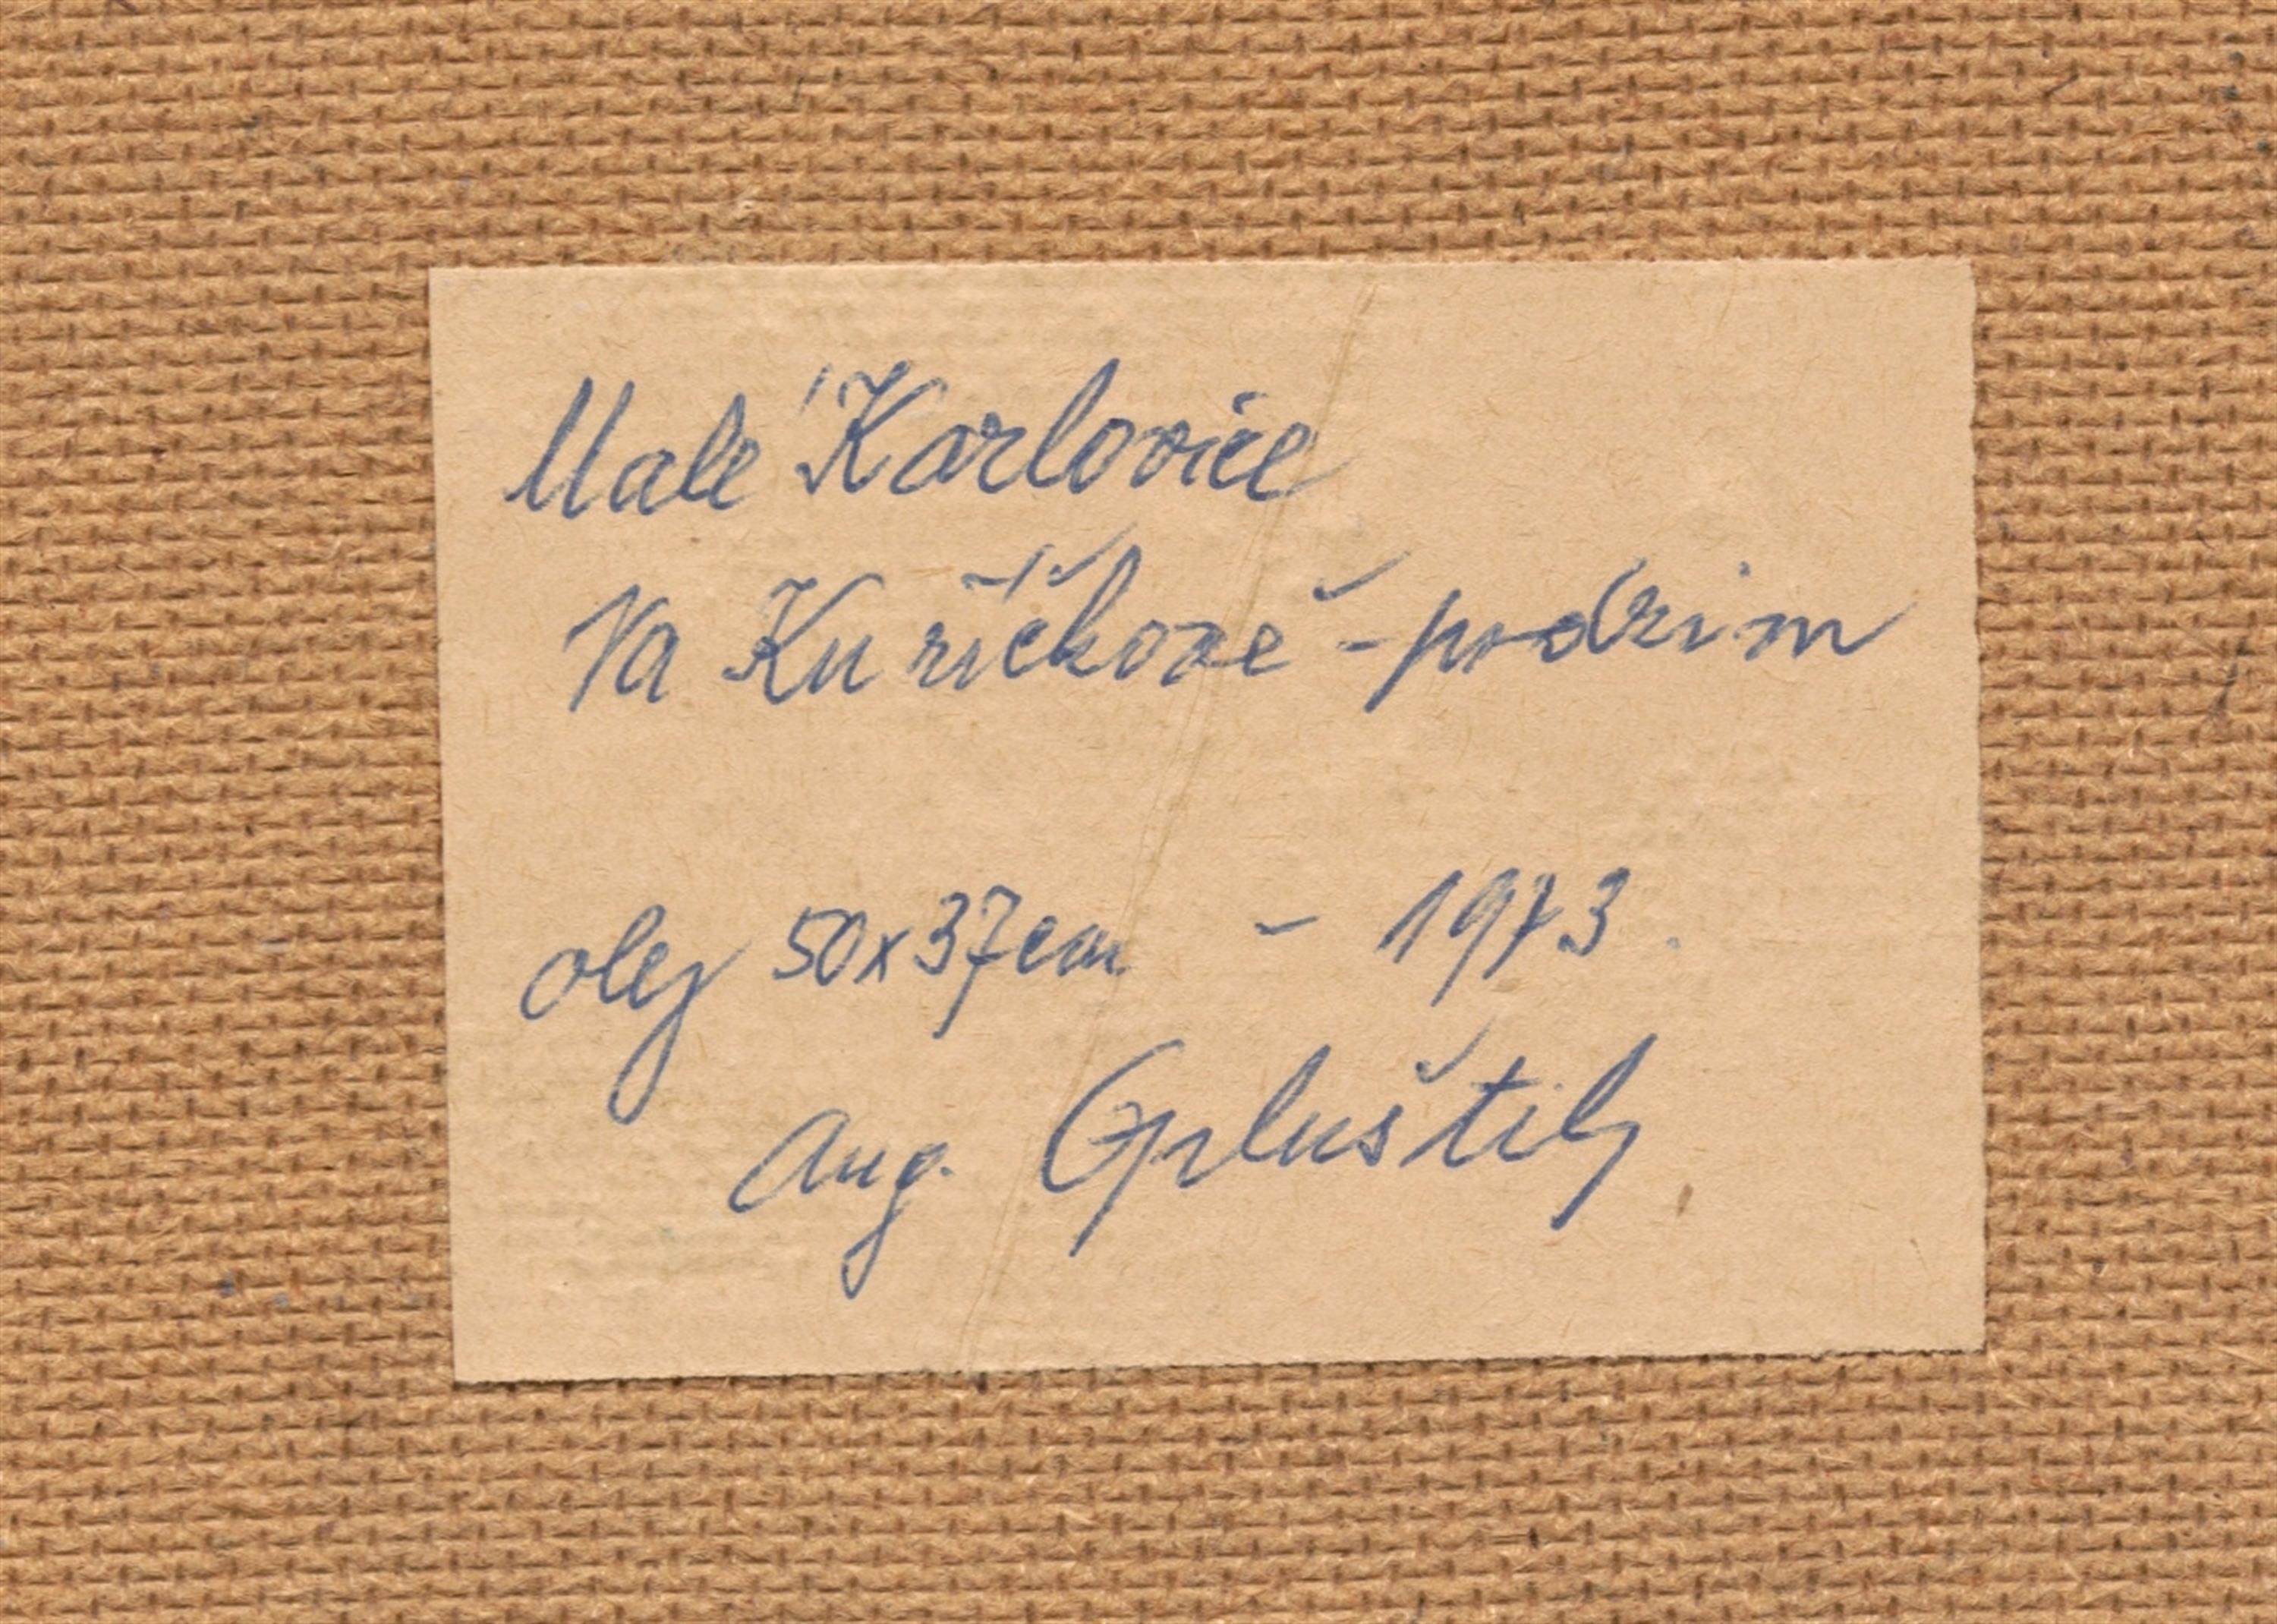 Malé Karlovice
Na Kuříčkově - podzim
olej 50x37cm - 1973.
Aug. Opluštil